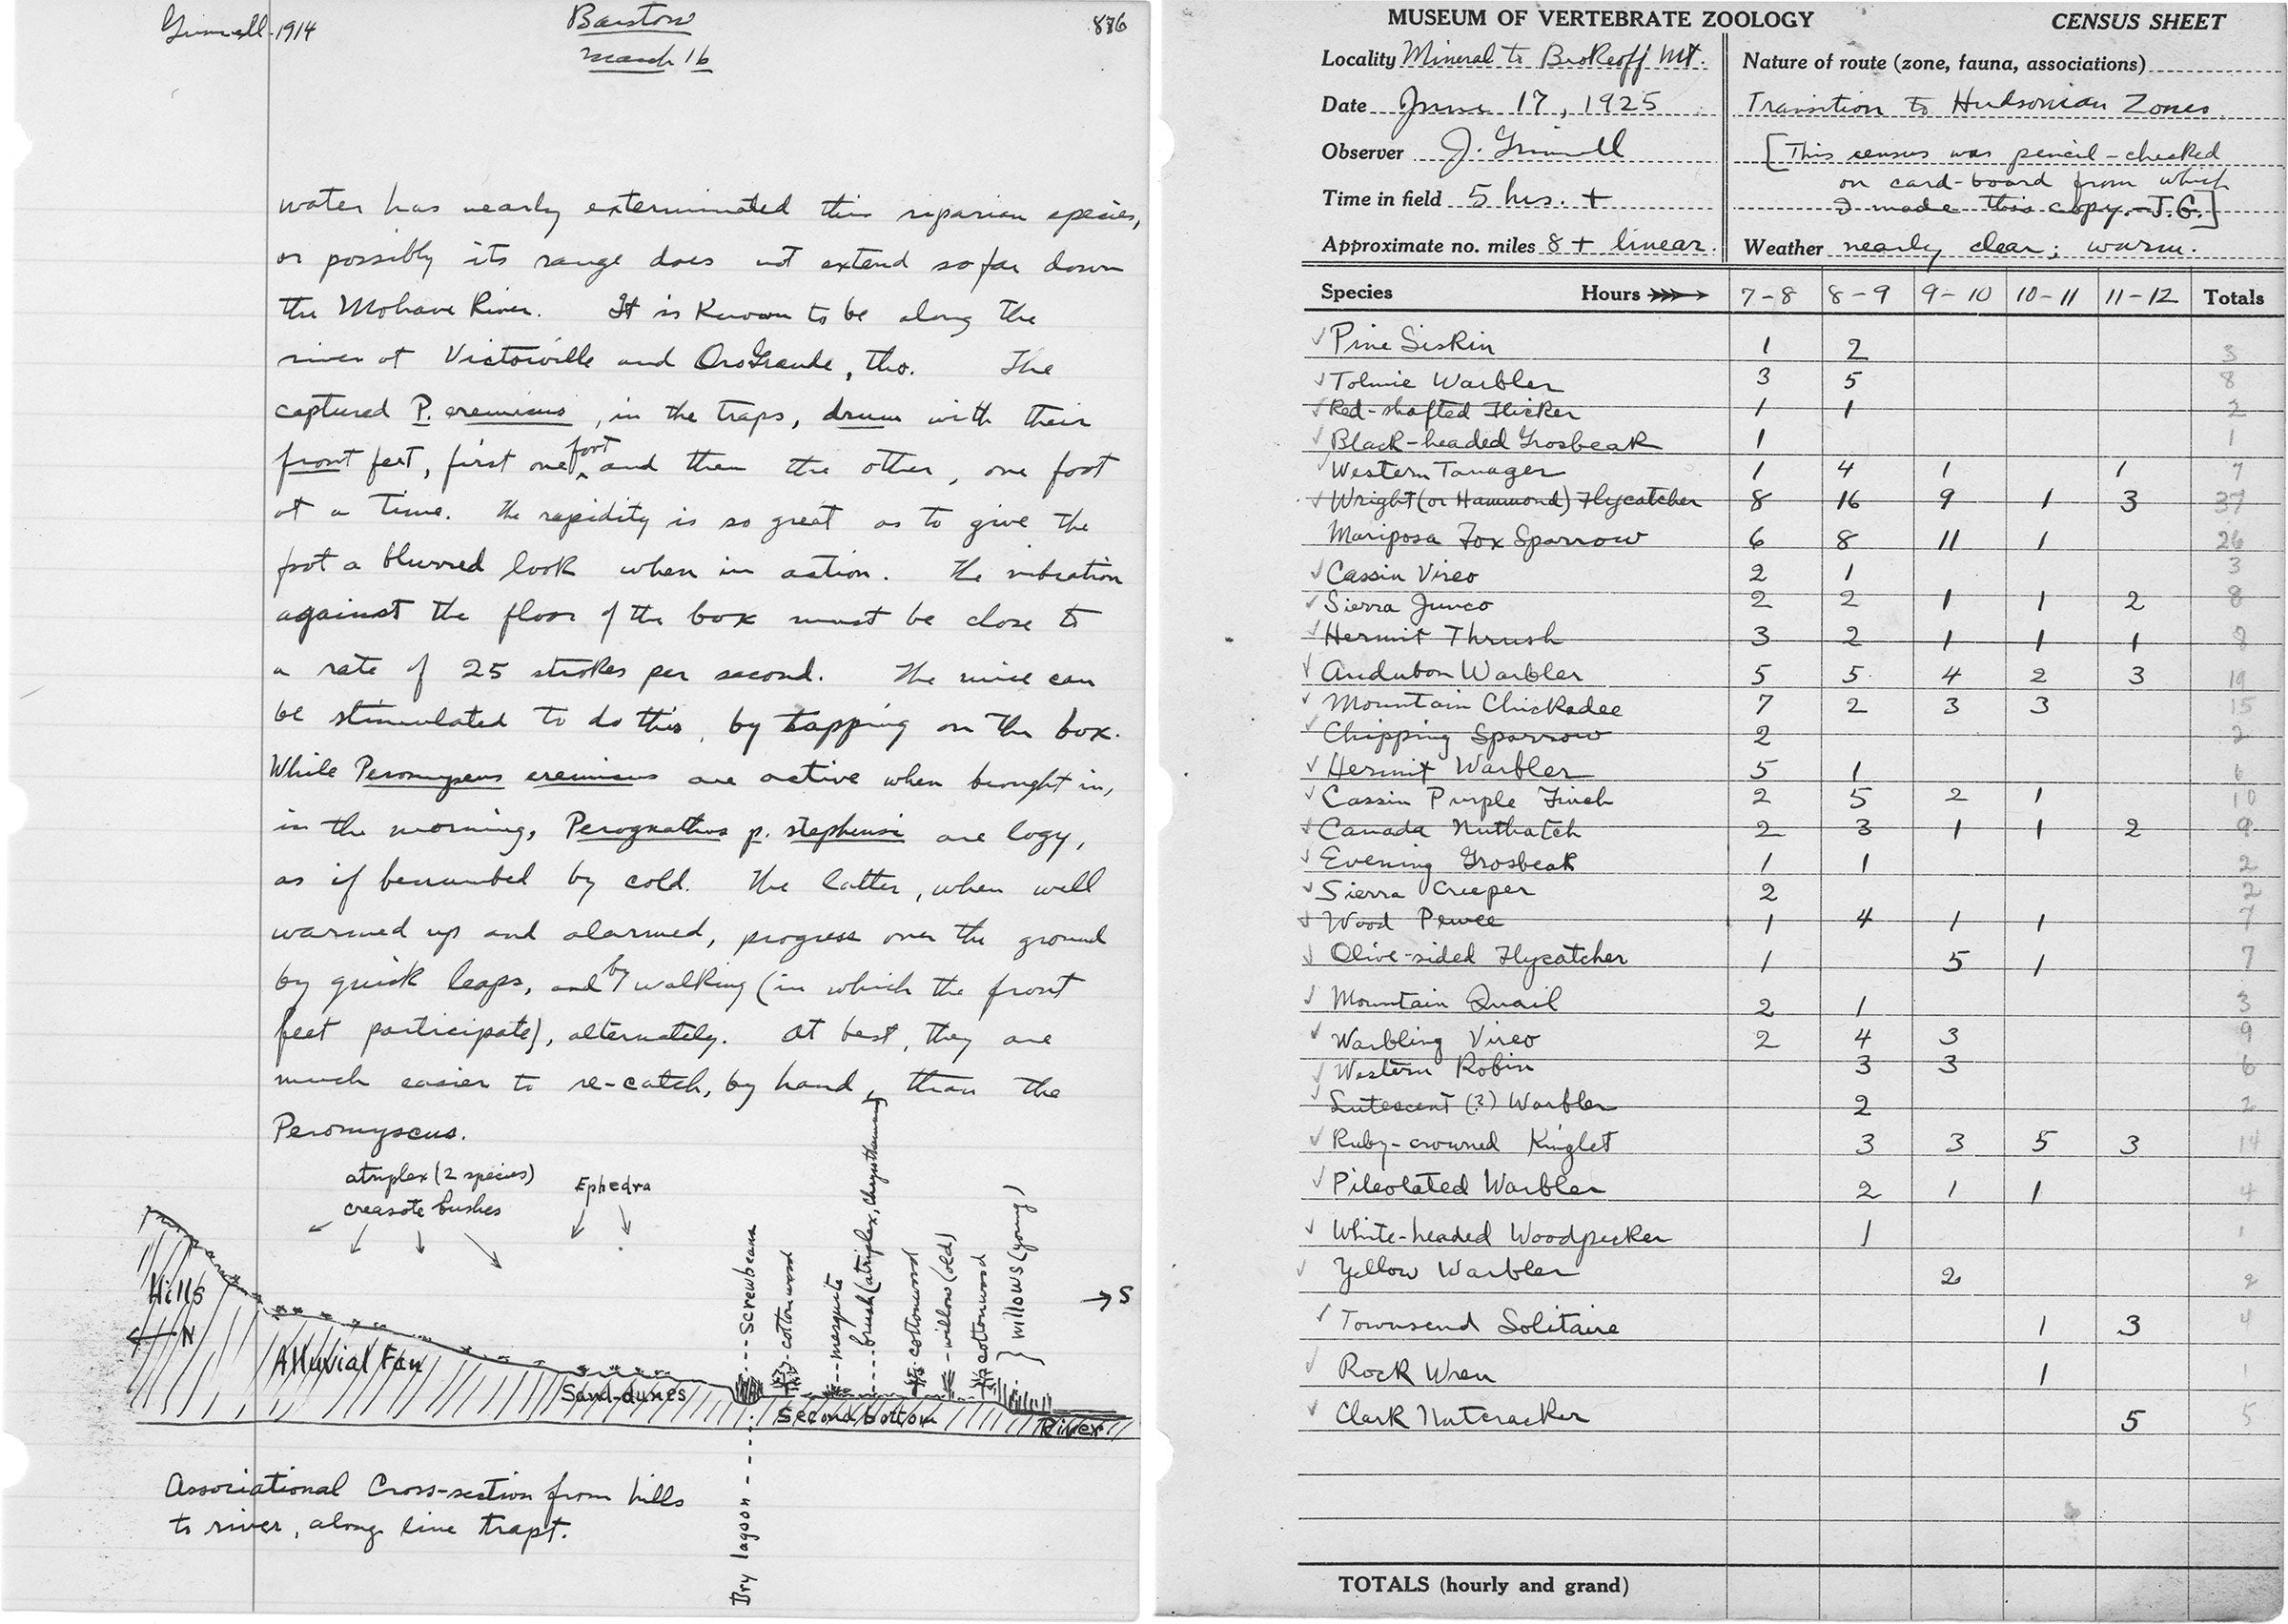 Grinnell-1914
Barstow
March 16
886
water has nearly exterminated this riparian species,
or possibly its range does not extend so far down
the Mohave River. It is Known to be along the
river at Victorville and OroGrande, tho. The
captured P. eremicus, in the traps, drum with their
front feet, first one foot and then the other, one foot
at a time. The rapidity is so great as to give the
foot a blurred look when in action. The vibration
against the floor of the box must be close to
a rate of 25 strokes per second. The mice can
be stimulated to do this, by tapping on the box.
While Peromyscus eremicus are active when brought in,
in the morning, Perognathus p. stephensi are logy,
as if benumbed by cold. The latter, when well
warmed up and alarmed, progress over the ground
by quick leaps, and by walking (in which the front
feet participate), alternately. At best, they are
much easier to re-catch, by hand, than the
Peromyscus.
atriplex (2 species)
creasote bushes
Ephedra
Hills
← N
Alluvial Fan
Sand-dunes
Dry lagoon
screwbeans
cottonwood
mesquite
brush (atriplex, Chrysothamnus)
cottonwood
willow (old)
cottonwood
willows (young)
→ S
Second bottom
River
Associational Cross-section from hills
to river, along line trapt.
MUSEUM OF VERTEBRATE ZOOLOGY CENSUS SHEET
Locality Mineral to Brokeoff Mt.
Date June 17, 1925
Observer J. Grinnell
Time in field 5 hrs. +
Approximate no. miles 8 + linear.
Nature of route (zone, fauna, associations)
Transition to Hudsonian Zones
[This census was pencil-checked
on card-board from which
I made this copy.-J.G.]
Weather nearly clear; warm.
Species Hours 7-8 8-9 9-10 10-11 11-12 Totals
✓ Pine Siskin 1 2 3
✓ Tolmie Warbler 3 5 8
✓ Red-shafted Flicker 1 1 2
✓ Black-headed Grosbeak 1 1
✓ Western Tanager 1 4 1 1 7
✓ Wright (or Hammond) Flycatcher 8 16 9 1 3 37
Mariposa Fox Sparrow 6 8 11 1 26
✓ Cassin Vireo 2 1 3
✓ Sierra Junco 2 2 1 1 2 8
✓ Hermit Thrush 3 2 1 1 1 8
✓ Audubon Warbler 5 5 4 2 3 19
✓ Mountain Chickadee 7 2 3 3 15
✓ Chipping Sparrow 2 2
✓ Hermit Warbler 5 1 6
✓ Cassin Purple Finch 2 5 2 1 10
✓ Canada Nuthatch 2 3 1 1 2 9
✓ Evening Grosbeak 1 1 2
✓ Sierra Creeper 2 2
✓ Wood Pewee 1 4 1 1 7
✓ Olive-sided Flycatcher 1 5 1 7
✓ Mountain Quail 2 1 3
✓ Warbling Vireo 2 4 3 9
✓ Western Robin 3 3 6
✓ Lutescent (?) Warbler 2 2
✓ Ruby-crowned Kinglet 3 3 5 3 14
✓ Pileolated Warbler 2 1 1 4
✓ White-headed Woodpecker 1 1
✓ Yellow Warbler 2 2
✓ Townsend Solitaire 1 3 4
✓ Rock Wren 1 1
✓ Clark Nutcracker 5 5
TOTALS (hourly and grand)